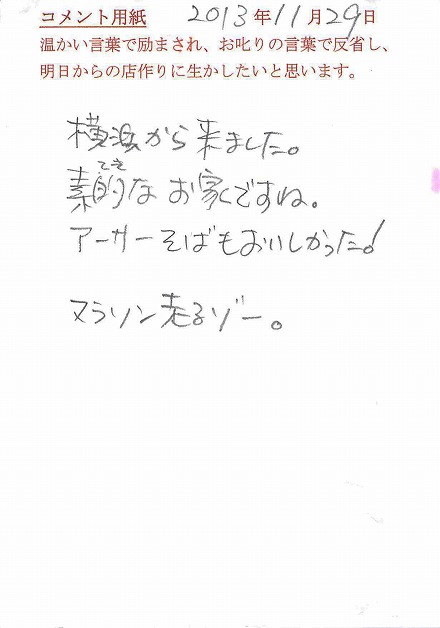 コメント用紙 2013年11月29日
温かい言葉で励まされ、お叱りの言葉で反省し、
明日からの店作りに生かしたいと思います。
横浜から来ました。
てき
素的なお家ですね。
アーサーそばもおいしかった!
マラソン走るゾー。